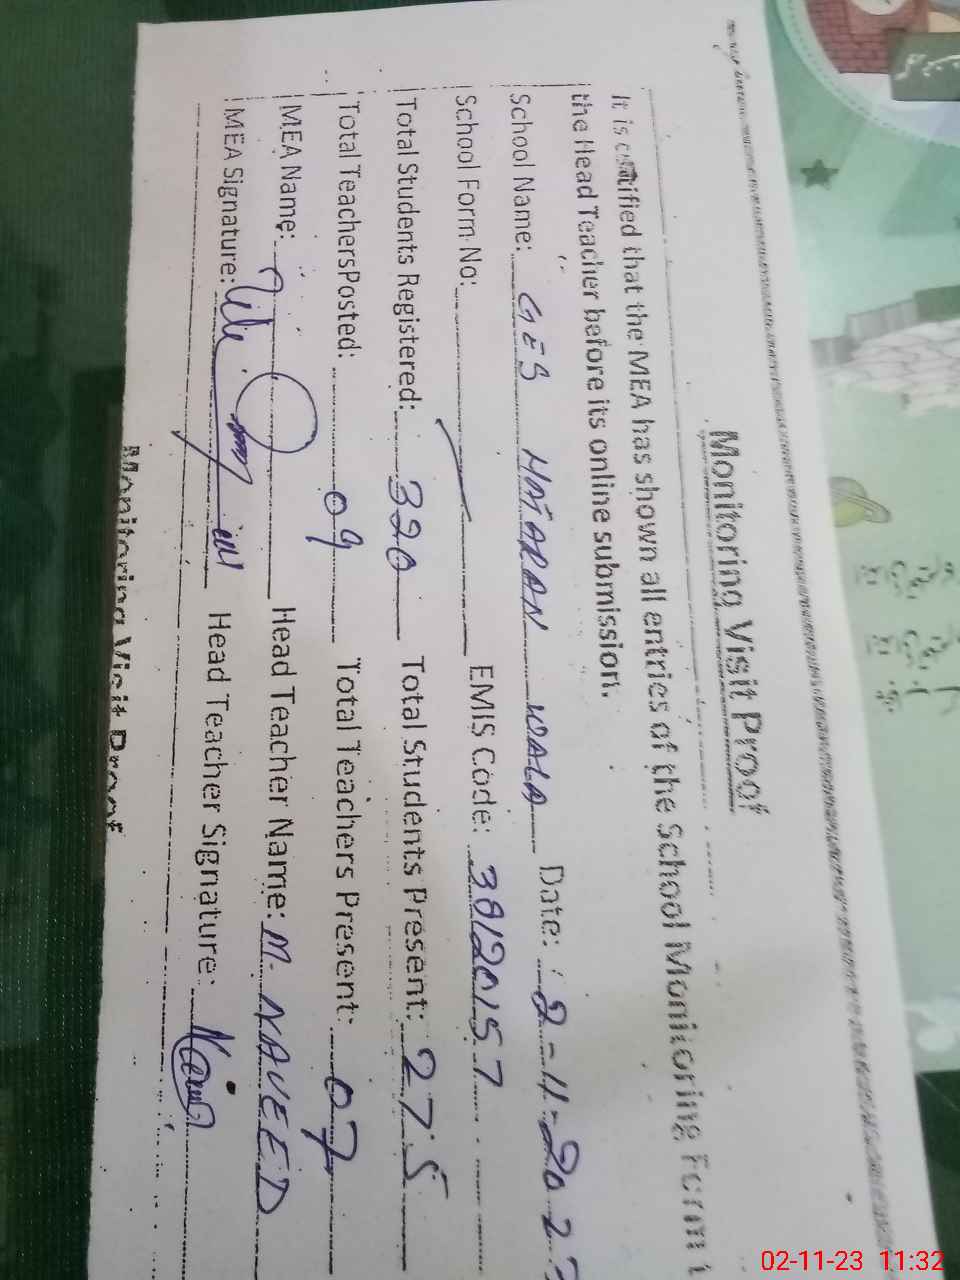 Monitoring Visit Proof
It is certified that the MEA has shown all entries of the School Monitoring Form t
the Head Teacher before its online submission.
School Name: GES HAJARAN WALA Date: 2-11-202
School Form No: EMIS Code: 38120157
Total Students Registered: 320 Total Students Present: 275
Total TeachersPosted: 09 Total Teachers Present: 07
MEA Name: Head Teacher Name: M. NAVEED
MEA Signature: Head Teacher Signature:
Monitoring Visit Proof
02-11-23 11:32